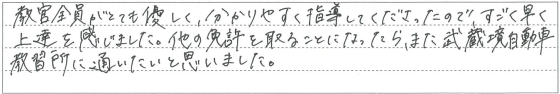 教官全員がとても優しく、分かりやすく指導してくださったので、すごく早く
上達を感じました。他の免許を取ることになったら、また武蔵境自動車
教習所に通いたいと思いました。